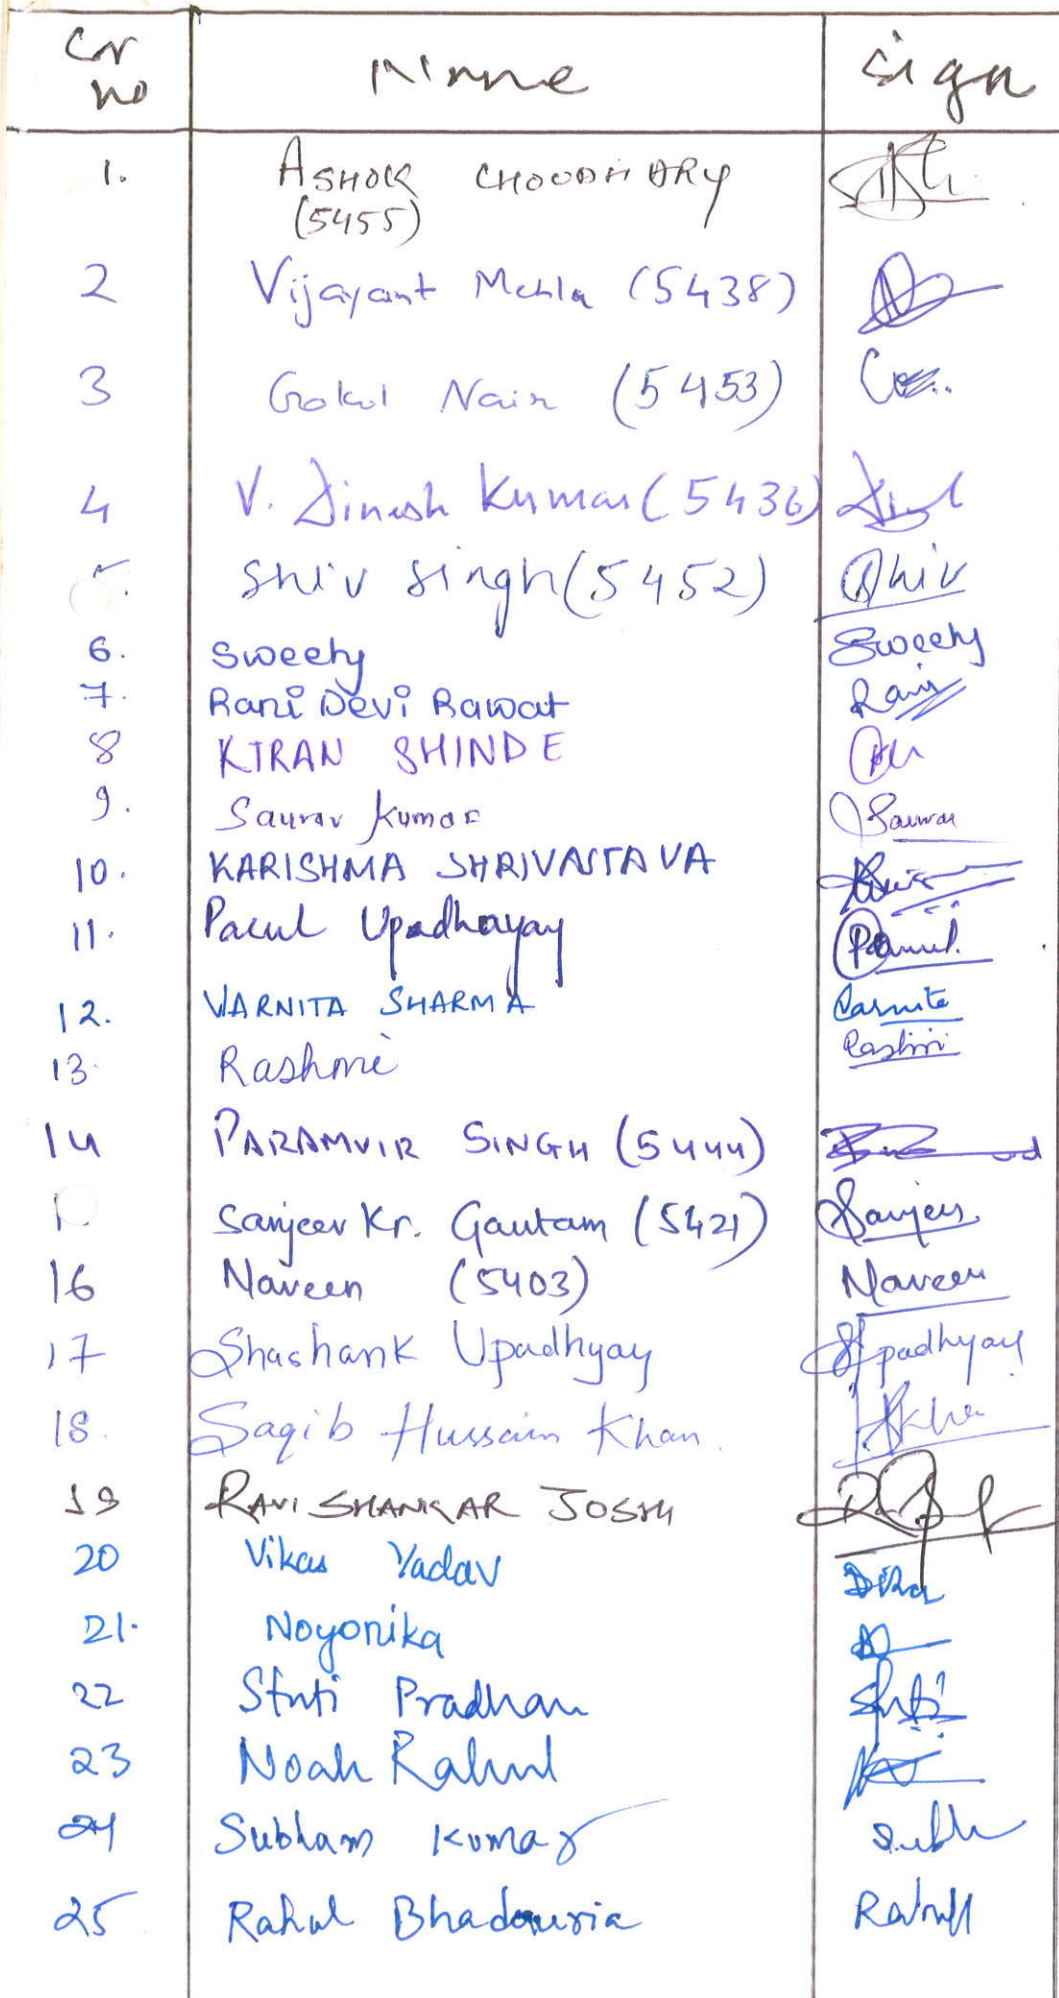 Sr no Name Sign
1. ASHOK CHOUDHARY
(5455)
2 Vijayant Mehla (5438)
3 Gokul Nair (5453)
4 V. Dinesh Kumar (5436)
5. Shiv Singh (5452) Shiv
6. Sweety Sweety
7. Rani Devi Rawat Rani
8 KIRAN SHINDE
9. Saurav Kumar Saurav
10. KARISHMA SHRIVASTAVA
11. Parul Upadhayay Parul
12. VARNITA SHARMA Varnita
13. Rashmi Rashmi
14 PARAMVIR SINGH (5444)
1 Sanjeev Kr. Gautam (5421) Sanjeev
16 Naveen (5403) Naveen
17 Shashank Upadhyay Upadhyay
18. Saqib Hussain Khan.
19 RAVI SHANKAR JOSHI
20 Vikas Yadav
21. Noyonika
22 Stuti Pradhan Stuti
23 Noah Rahul
24 Subham Kumar Subh
25 Rahul Bhadouria Rahul